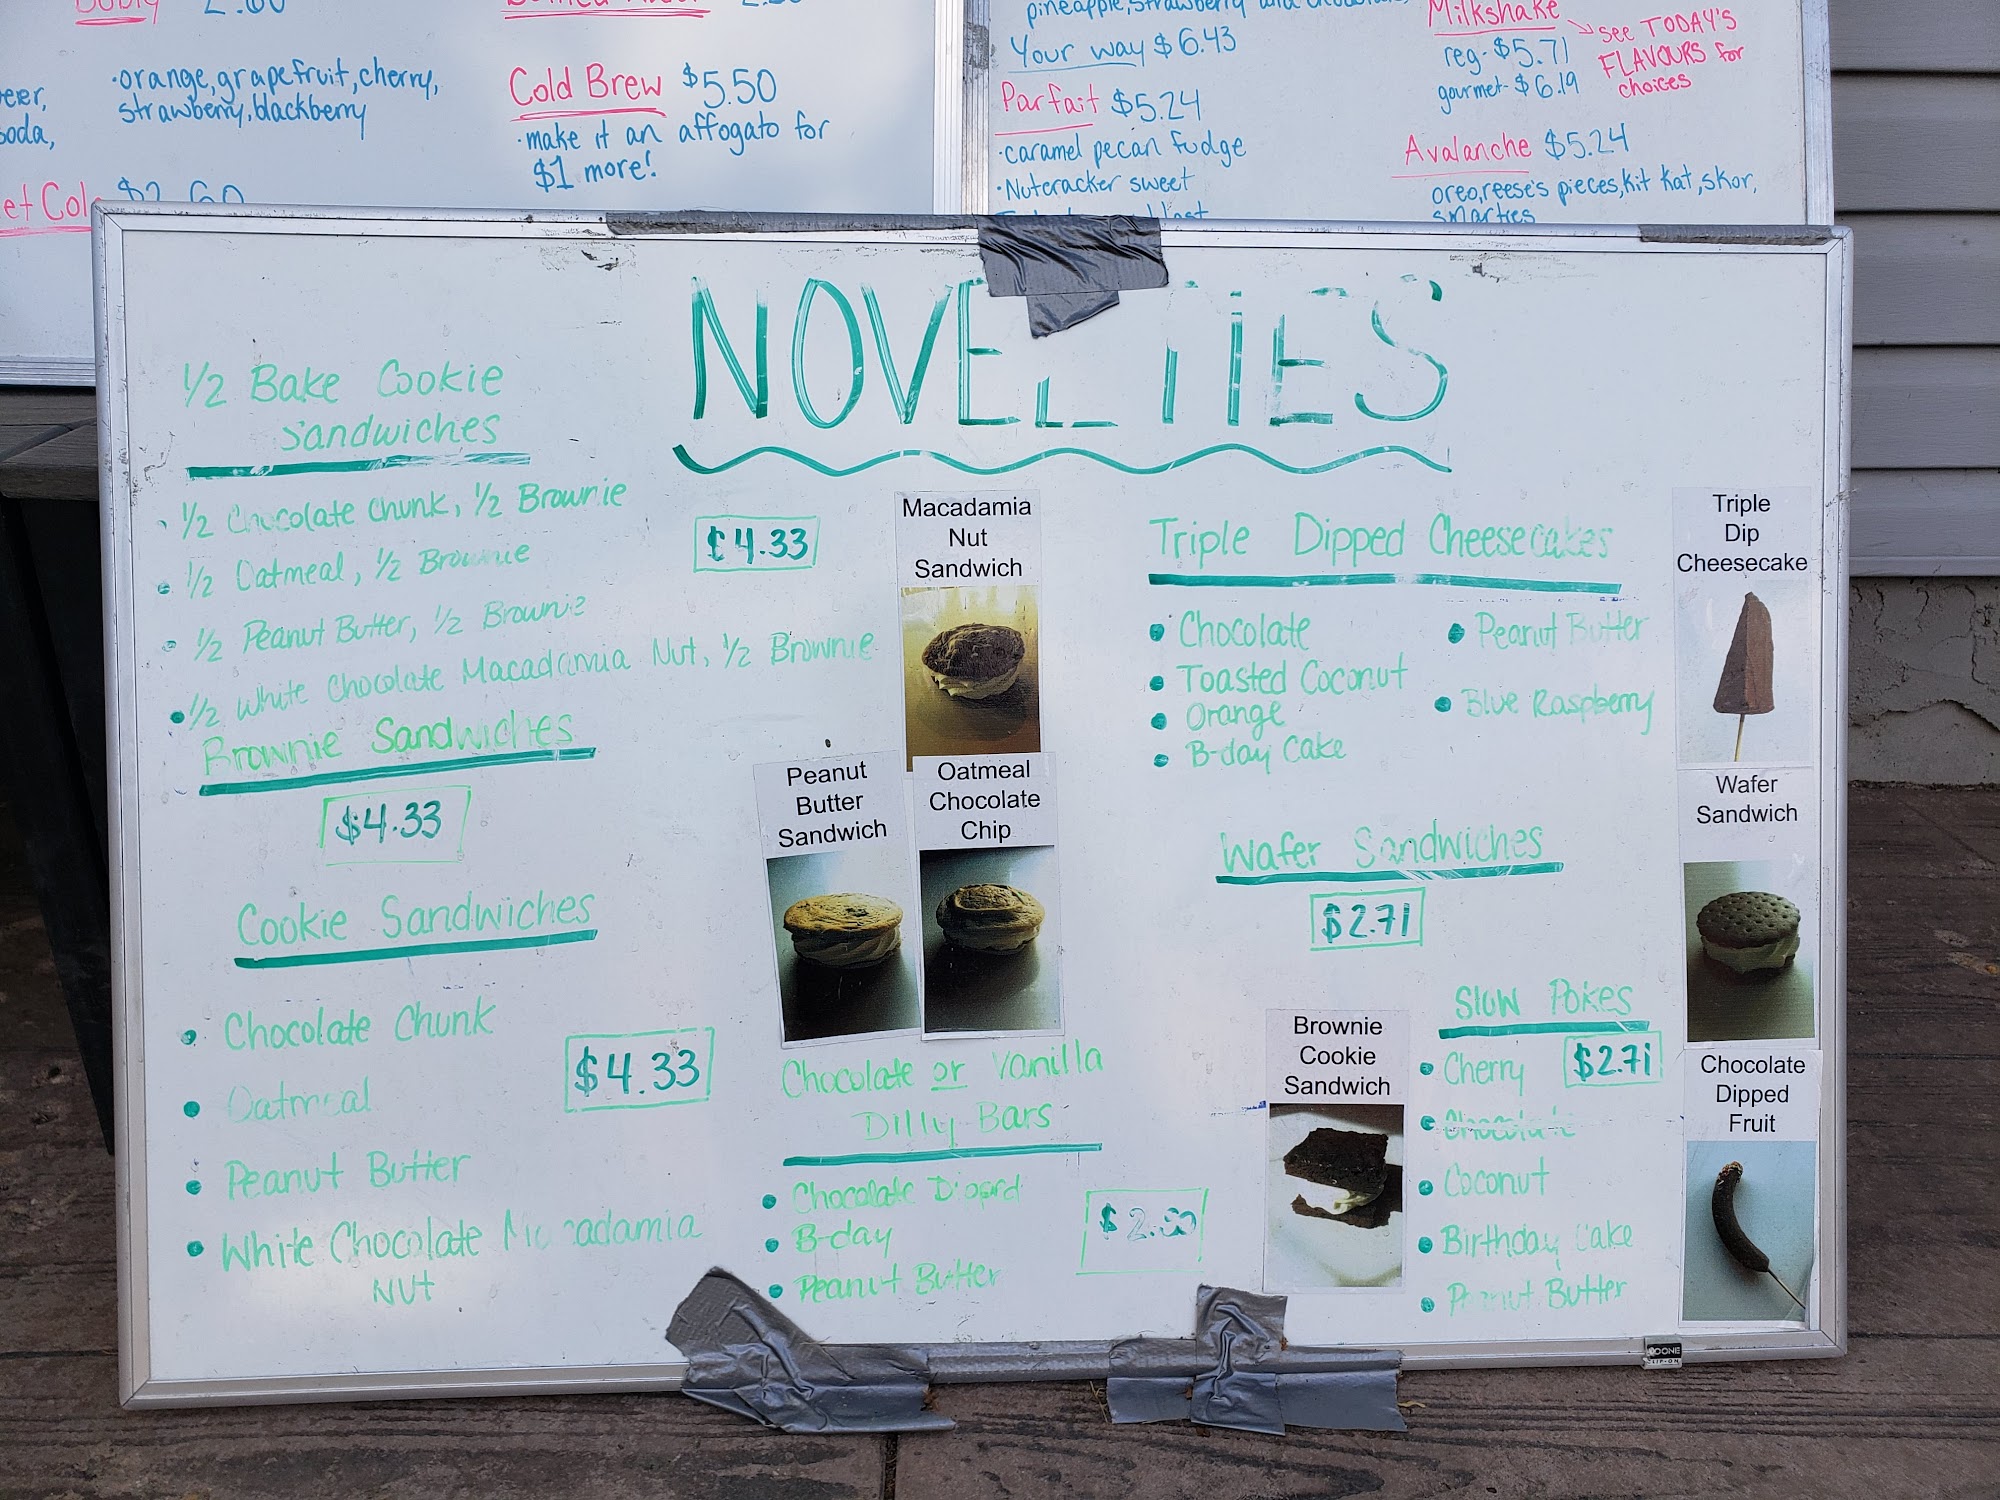 2.60
eer,
soda,
·orange, grapefruit, cherry,
strawberry, blackberry
Cold Brew $5.50
·make it an affogato for
$1 more!
et Col $2.60
pineapple, strawberry and
Your way $6.43
Parfait $5.24
·caramel pecan fudge
·Nutcracker sweet
Milkshake
reg- $5.71
gourmet- $6.19
see TODAY'S
FLAVOURS for
choices
Avalanche $5.24
oreo, reese's pieces, kit kat, skor,
smarties
NOVELTIES
1/2 Bake Cookie
Sandwiches
· 1/2 Chocolate Chunk, 1/2 Brownie
· 1/2 Oatmeal, 1/2 Brownie
· 1/2 Peanut Butter, 1/2 Brownie
· 1/2 White Chocolate Macadamia Nut, 1/2 Brownie
$4.33
Brownie Sandwiches
$4.33
Cookie Sandwiches
· Chocolate Chunk
· Oatmeal
· Peanut Butter
· White Chocolate Macadamia
Nut
$4.33
Macadamia
Nut
Sandwich
Peanut
Butter
Sandwich
Oatmeal
Chocolate
Chip
Chocolate or Vanilla
Dilly Bars
· Chocolate Dipped
· B-day
· Peanut Butter
Triple Dipped Cheesecakes
· Chocolate
· Toasted Coconut
· Orange
· B-day Cake
· Peanut Butter
· Blue Raspberry
Wafer Sandwiches
$2.71
Brownie
Cookie
Sandwich
Slow Pokes
$2.71
· Cherry
· Chocolate
· Coconut
· Birthday Cake
· Peanut Butter
Triple
Dip
Cheesecake
Wafer
Sandwich
Chocolate
Dipped
Fruit